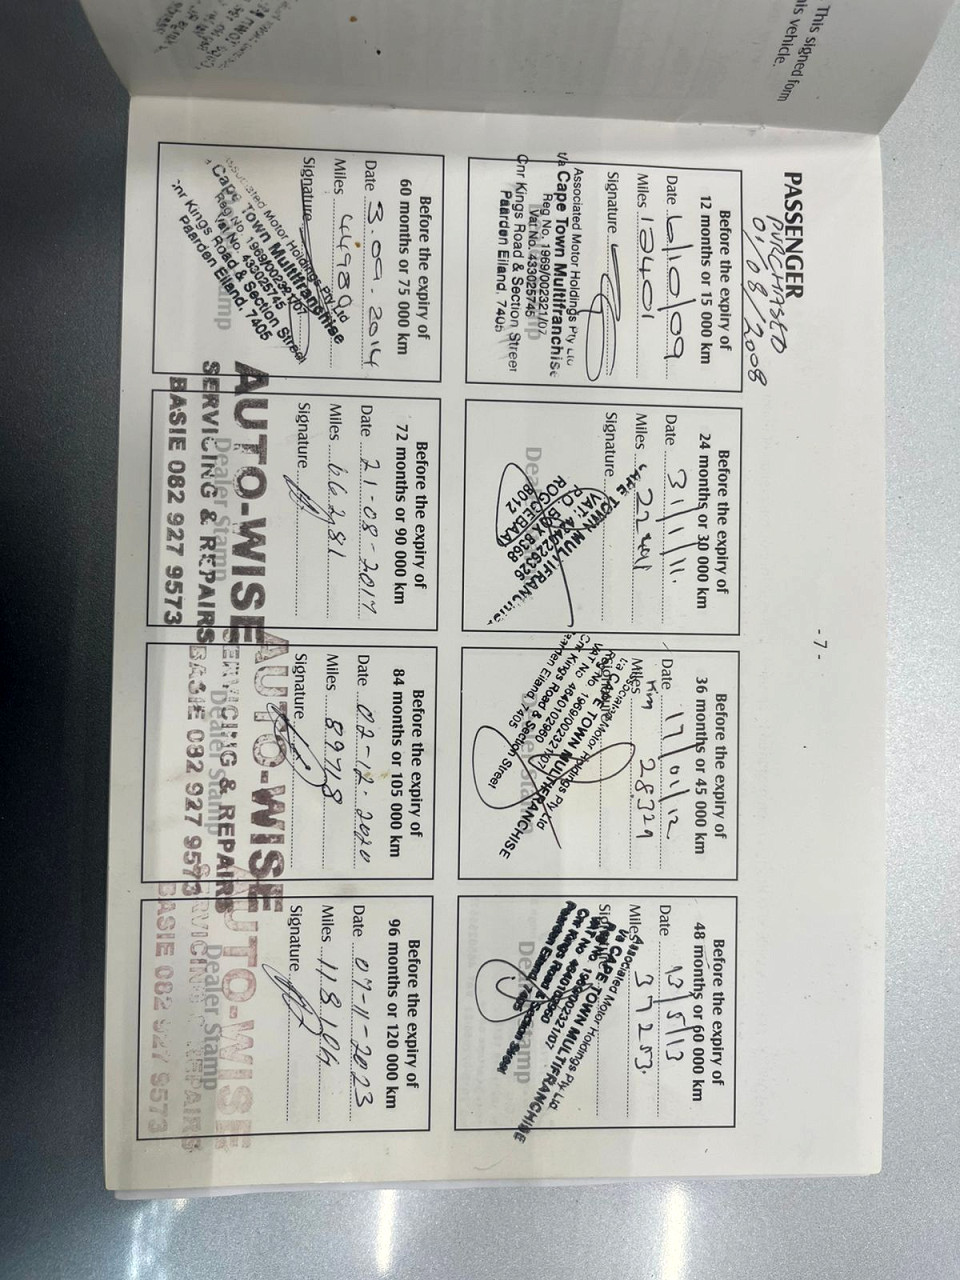 This signed form
his vehicle.
- 7 -
PASSENGER
PURCHASED
01/08/2008
Before the expiry of
12 months or 15 000 km
Date 6/10/09
Miles 12401
Signature
Associated Motor Holdings Pty Ltd
t/a Cape Town Multifranchise
Reg No. 1969/002321/07
Vat No. 433025745
Cnr Kings Road & Section Street
Paarden Eiland, 7405
Before the expiry of
24 months or 30 000 km
Date 31/1/11.
Miles 22441
Signature
CAPE TOWN MULTIFRANCHISE
VAT: 4640226326
P.O. BOX 8368
ROGGEBAAI
8012
Before the expiry of
36 months or 45 000 km
Date 17/01/12
Km
Miles 28329
Associated Motor Holdings Pty Ltd
t/a CAPE TOWN MULTIFRANCHISE
Reg No 1969/002321/07
VAT No 4640102960
Cnr Kings Road & Section Street
Paarden Eiland 7405
Before the expiry of
48 months or 60 000 km
Date 13/5/13
Miles 37253.
Associated Motor Holdings Pty Ltd
t/a CAPE TOWN MULTIFRANCHISE
Before the expiry of
60 months or 75 000 km
Date 3.09.2014
Miles 44989
Signature
Associated Motor Holdings Pty Ltd
Cape Town Multifranchise
Reg No. 1969/002321/07
Vat No. 433025745
Cnr Kings Road & Section Street
Paarden Eiland, 7405
Before the expiry of
72 months or 90 000 km
Date 21-08-2017
Miles 66281
Signature
Dealer Stamp
AUTO-WISE
SERVICING & REPAIRS
BASIE 082 927 9573
Before the expiry of
84 months or 105 000 km
Date 02-12-2020
Miles 89718
Signature
Dealer Stamp
AUTO-WISE
SERVICING & REPAIRS
BASIE 082 927 9573
Before the expiry of
96 months or 120 000 km
Date 07-11-2023
Signature
Dealer Stamp
AUTO-WISE
SERVICING REPAIRS
BASIE 082 927 9573